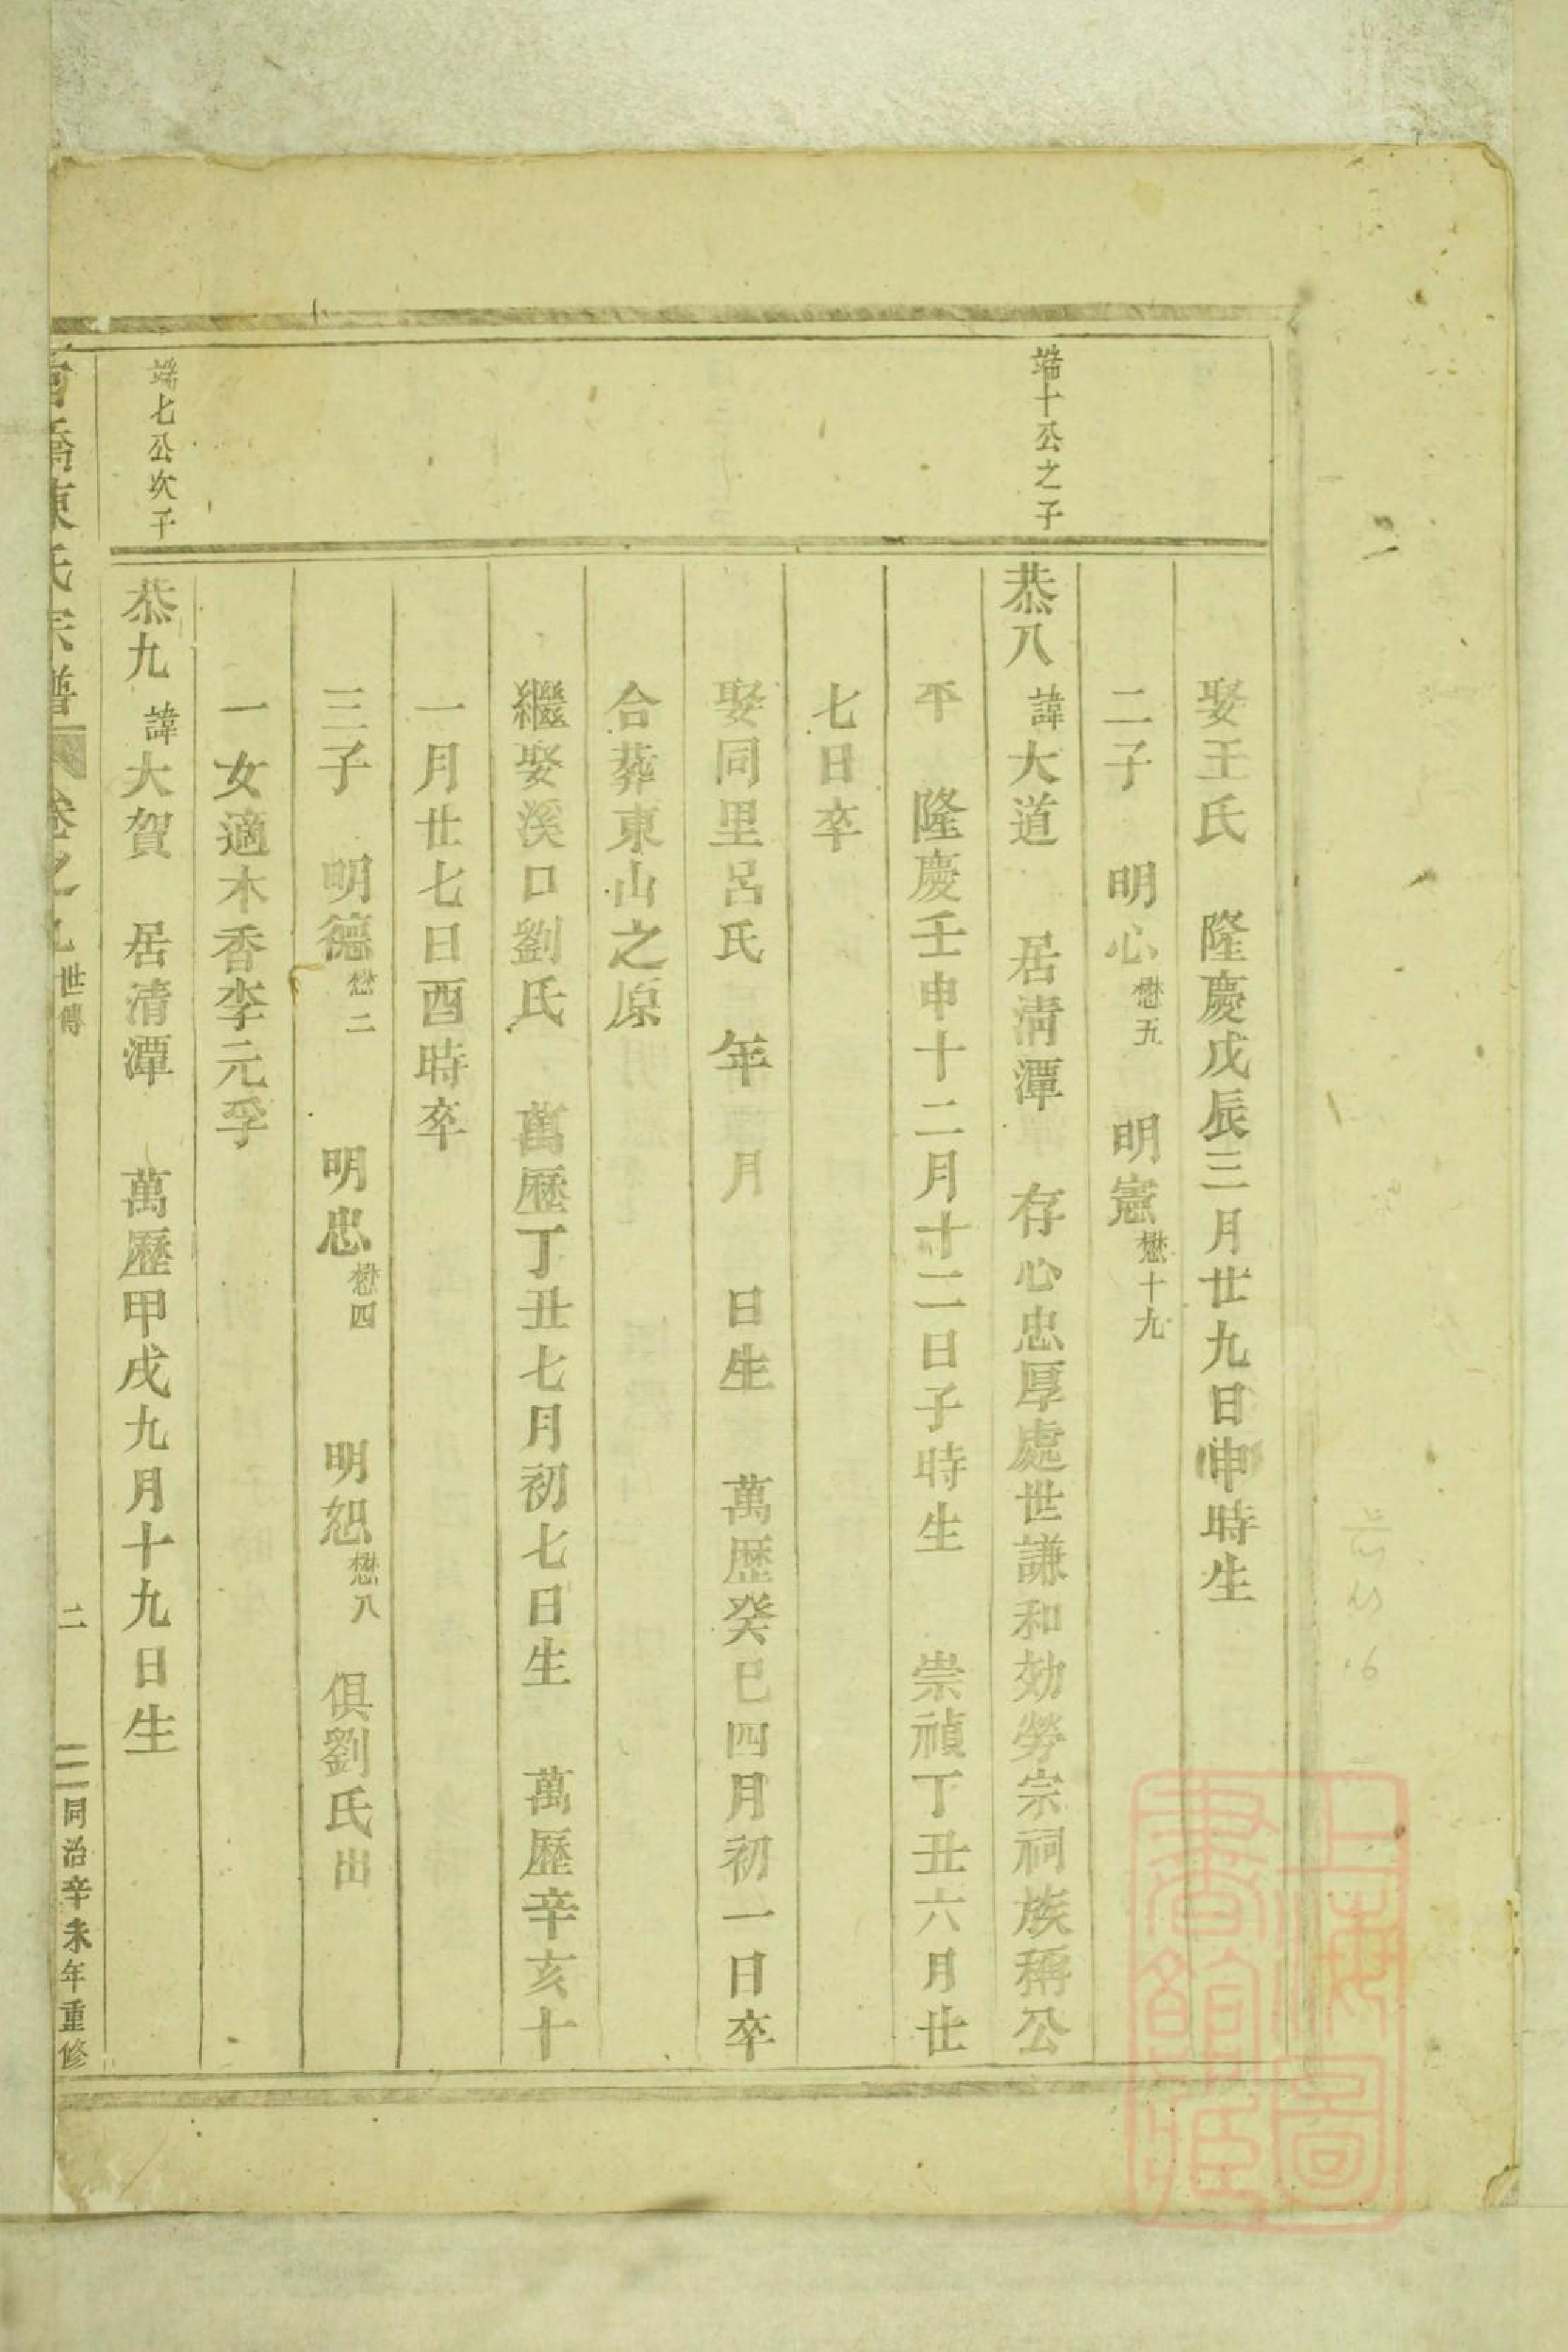 娶王氏 隆慶戊辰三月廿九日申時生
二子 明心懋五 明憲懋十九
端十公之子
恭八 諱大道 居清潭 存心忠厚處世謙和効勞宗祠族稱公
平 隆慶壬申十二月十二日子時生 崇禎丁丑六月廿
七日卒
娶同里呂氏 年 月 日生 萬歷癸巳四月初一日卒
合葬東山之原
繼娶溪口劉氏 萬歷丁丑七月初七日生 萬歷辛亥十
一月廿七日酉時卒
三子 明德懋二 明忠懋四 明恕懋八 俱劉氏出
一女適木香李元孚
端七公次子
恭九 諱大賀 居清潭 萬歷甲戌九月十九日生
橋陳氏宗譜 卷之九 世傳 二 同治辛未年重修
上海圖書館藏
16